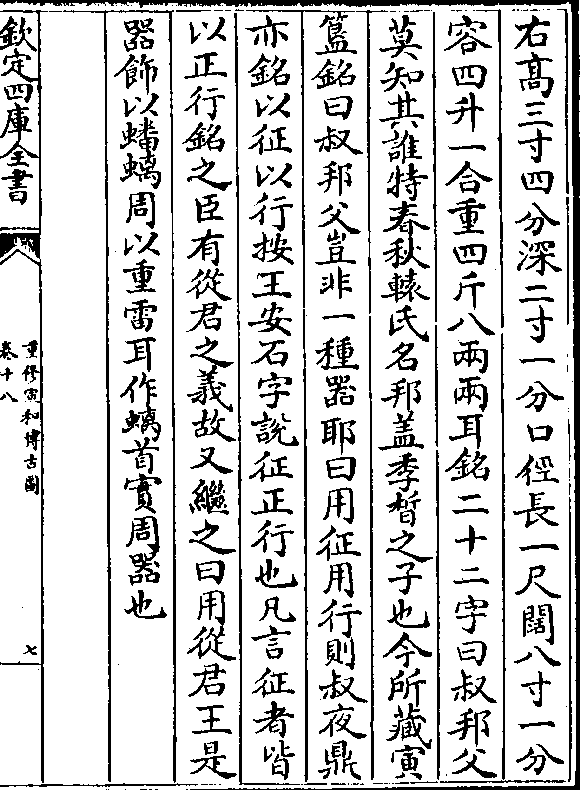 右高三寸四分深二寸一分口徑長一尺闊八寸一分
容四升一合重四斤八兩兩耳銘二十二字曰叔邦父
莫知其誰特春秋轅氏名邦盖季晳之子也今所藏寅
簋銘曰叔邦父豈非一種器耶曰用征用行則叔夜鼎
亦銘以征以行按王安石字說征正行也凡言征者皆
以正行銘之臣有從君之義故又繼之曰用從君王是
器飾以蟠螭周以重雷耳作螭首實周器也
欽定四庫全書
重修宣和博古圖
卷十八
七